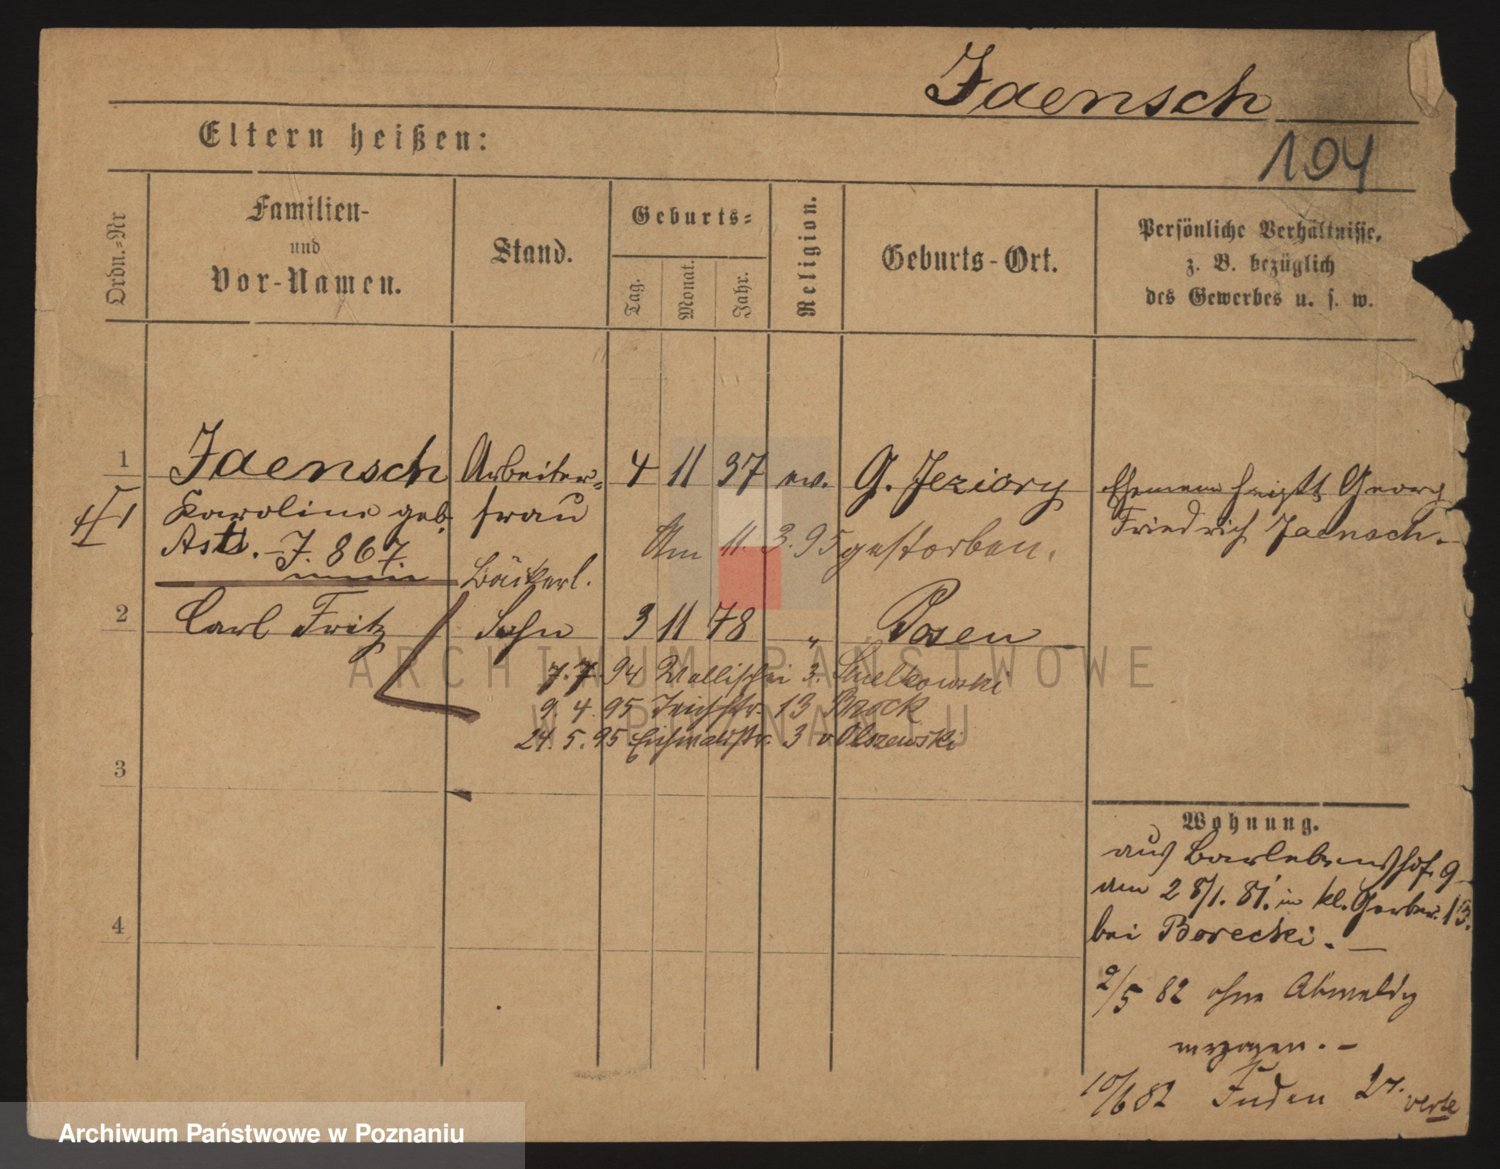 Jaensch
194
Eltern heißen:
Ordn.-Nr
Familien-
und
Vor-Namen.
Stand.
Geburts-
Tag.
Monat.
Jahr.
Religion.
Geburts-Ort.
Persönliche Verhältnisse,
z. B. bezüglich
des Gewerbes u. s. w.
1 Jaensch Arbeiter- 4 11 37 ev. G. Jeziory Ehemann heißt Georg
Karoline geb. frau Friedrich Jaensch.
J. 867. Am 11. 3. 95 gestorben.
Bäckerl.
2 Carl Fritz Sohn 3 11 78 " Posen
7. 7. 94 Wallischei 3.
9. 4. 95 Teichstr. 13 Brock
24. 5. 95 Eichwaldstr. 3 v Olszewski
3
4
Wohnung.
aus Barlebenshof 9
am 28/1. 81. in kl. Gerber. 13.
bei Borecki. —
2/5 82 ohne Abmeldg
verzogen. —
10/6 82 Juden 27.
verte
ARCHIWUM PAŃSTWOWE
W POZNANIU
Archiwum Państwowe w Poznaniu